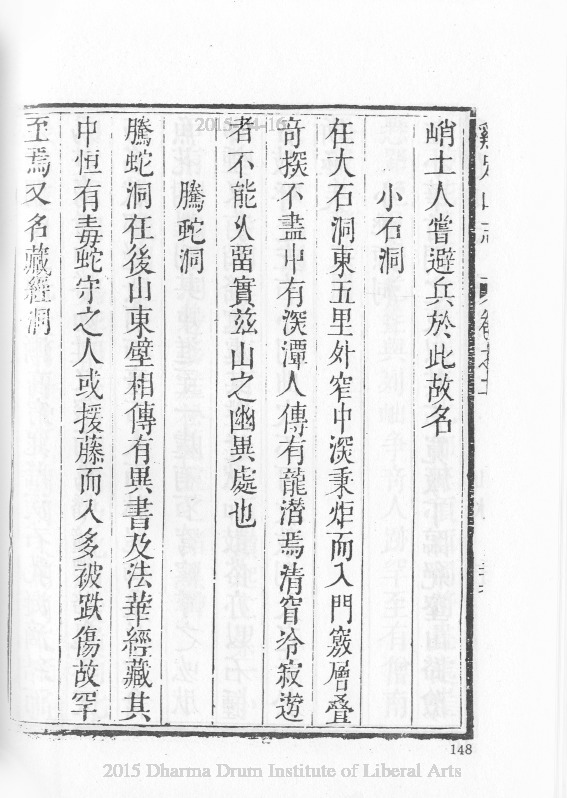 峭土人嘗避兵於此故名
小石洞
在大石洞東五里外窄中深秉炬而入門竅層叠
竒探不盡中有深潭人傳有龍潛焉清窅冷寂遊
者不能乆畱實兹山之幽異處也
騰蛇洞
騰蛇洞在後山東壁相傳有異書及法華經藏其
中恒有毒蛇守之人或援藤而入多被跌傷故罕
至焉又名藏經洞
148
2015 Dharma Drum Institute of Liberal Arts